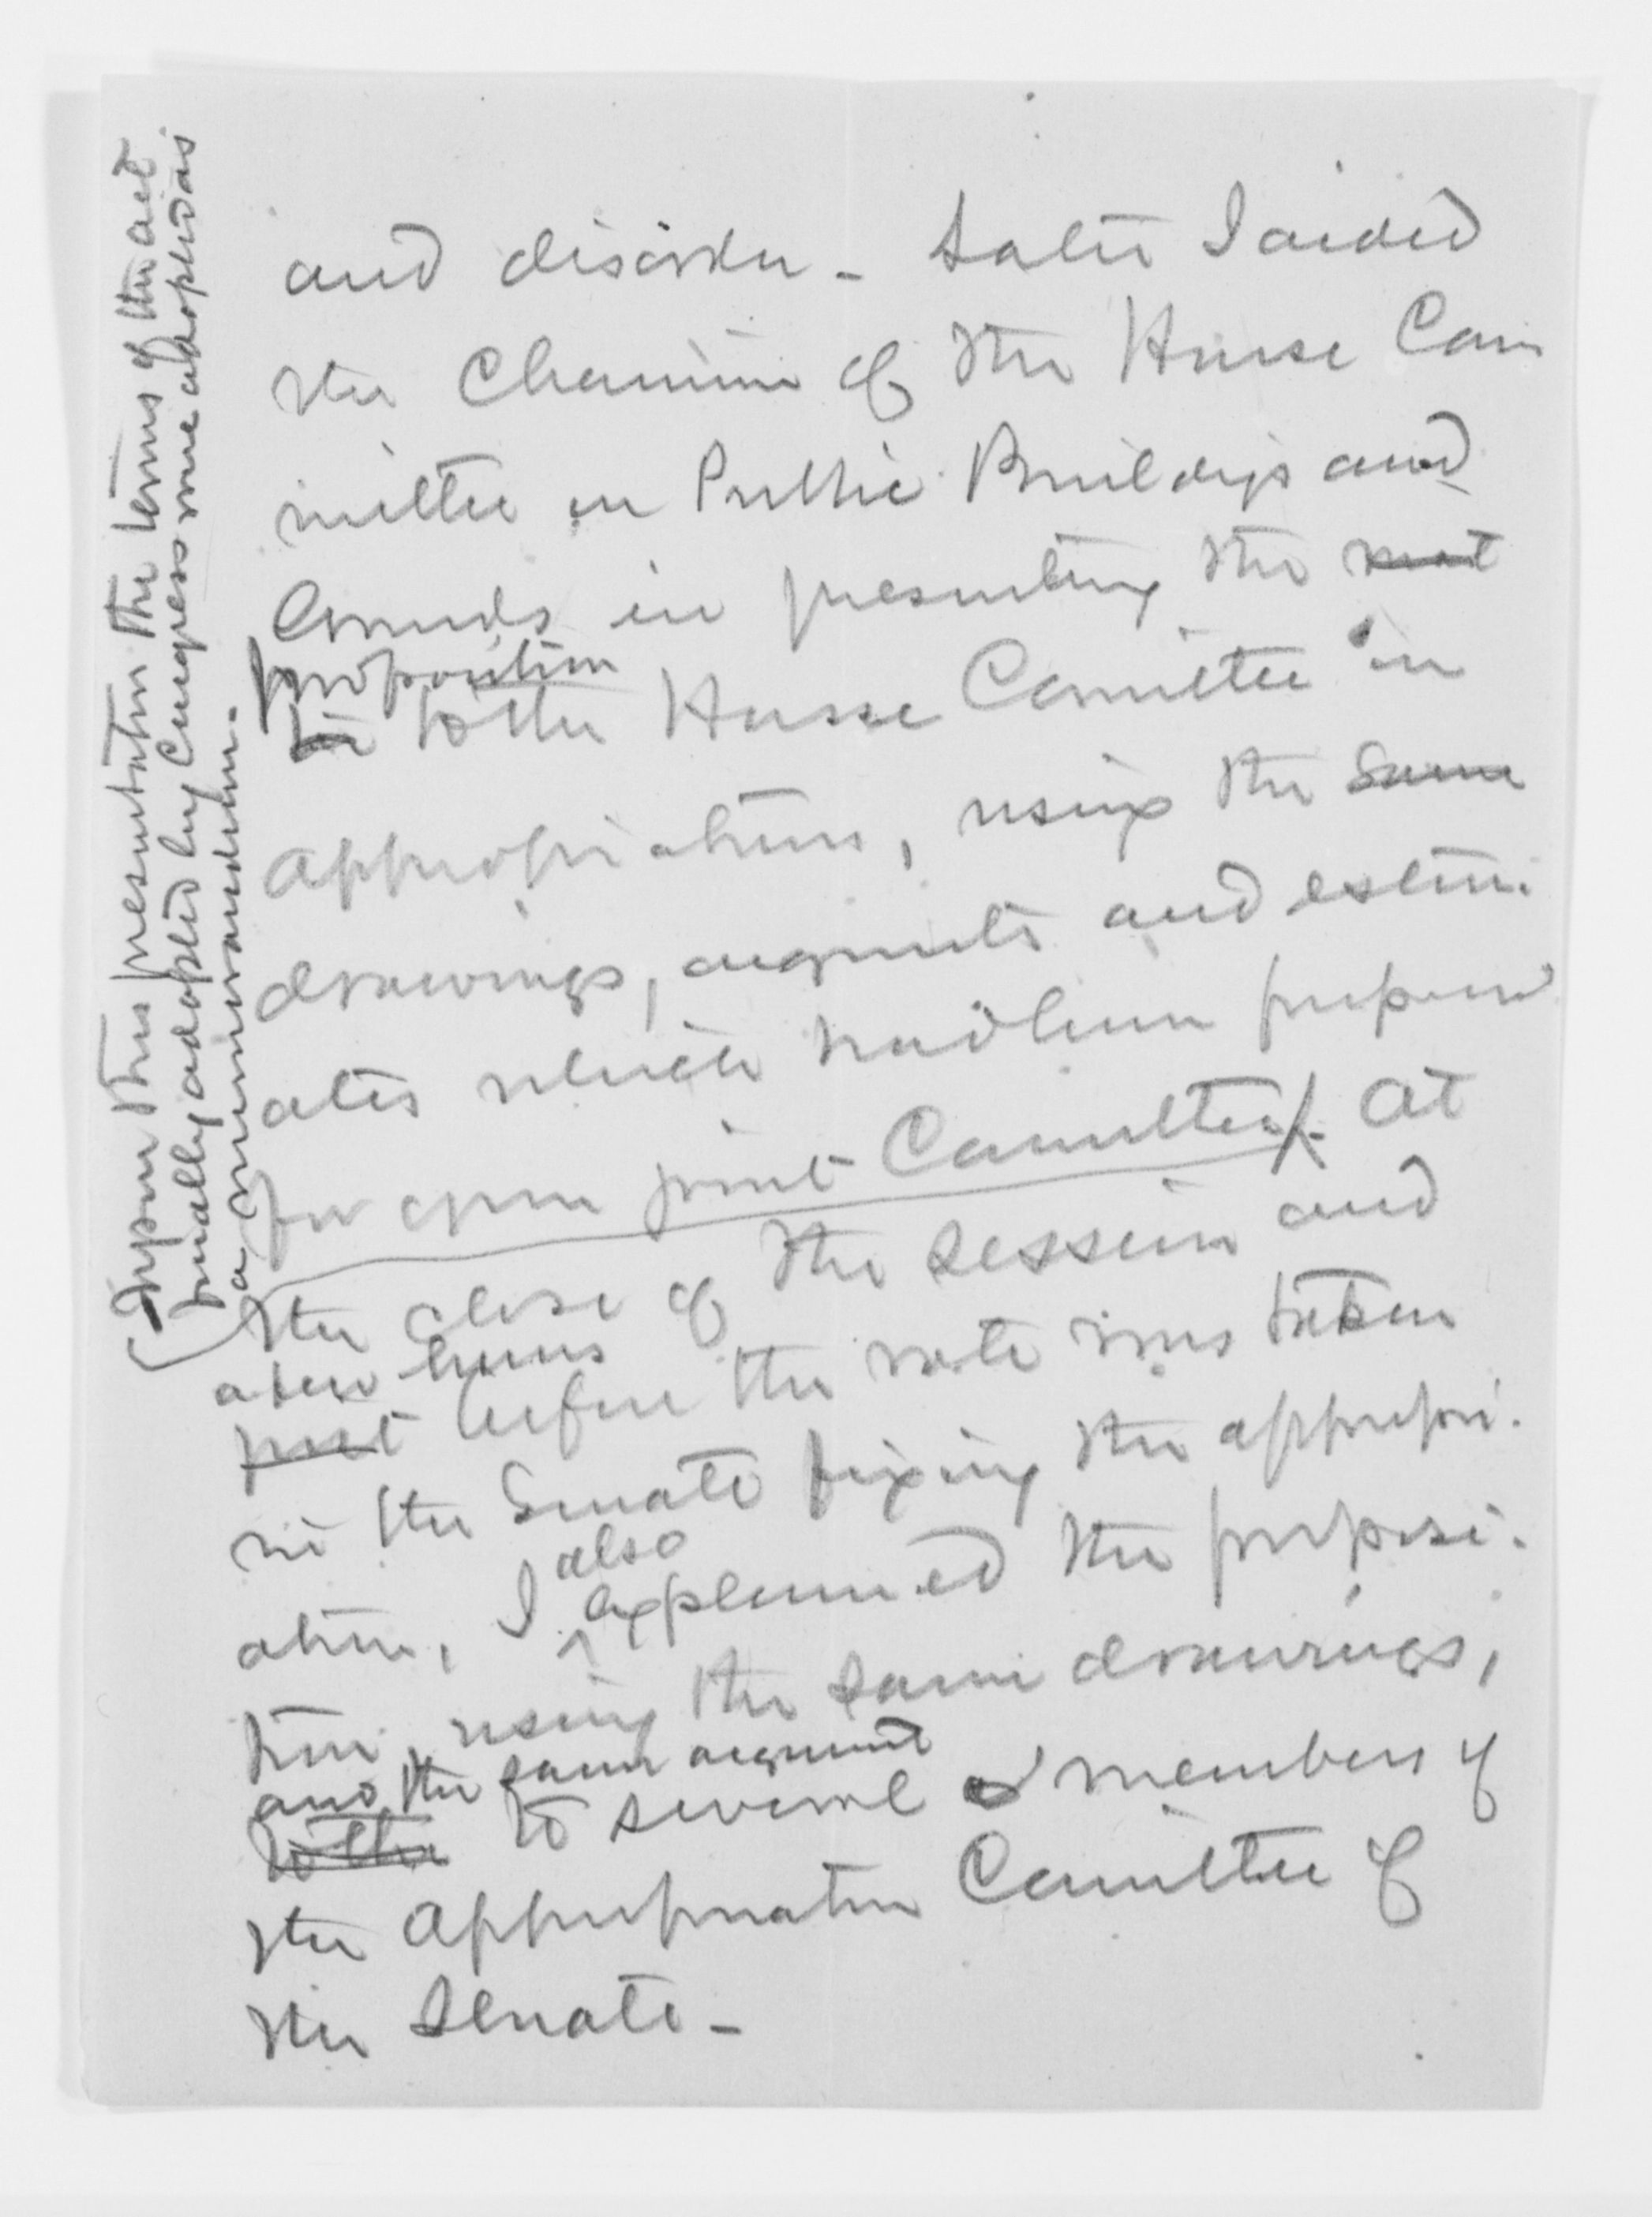 and disorder - Later I aided
the Chairman of the House Com
mittee on Public Buildings and
Grounds in presenting the
proposition
to the House Committee on
appropriations, using the same
drawings, arguments and estim-
ates which had been prepared
for open joint Committee. At
the close of the session and
a few hours
just before the vote was taken
in the Senate fixing the appropri-
also
ation, I explained the proposi-
tion, using the same drawings,
and the same argument
to the to several members of
the appropriation Committee of
the Senate -
(Upon this presentation the terms of the act
finally adopted by Congress were adopted as
a memorandum.